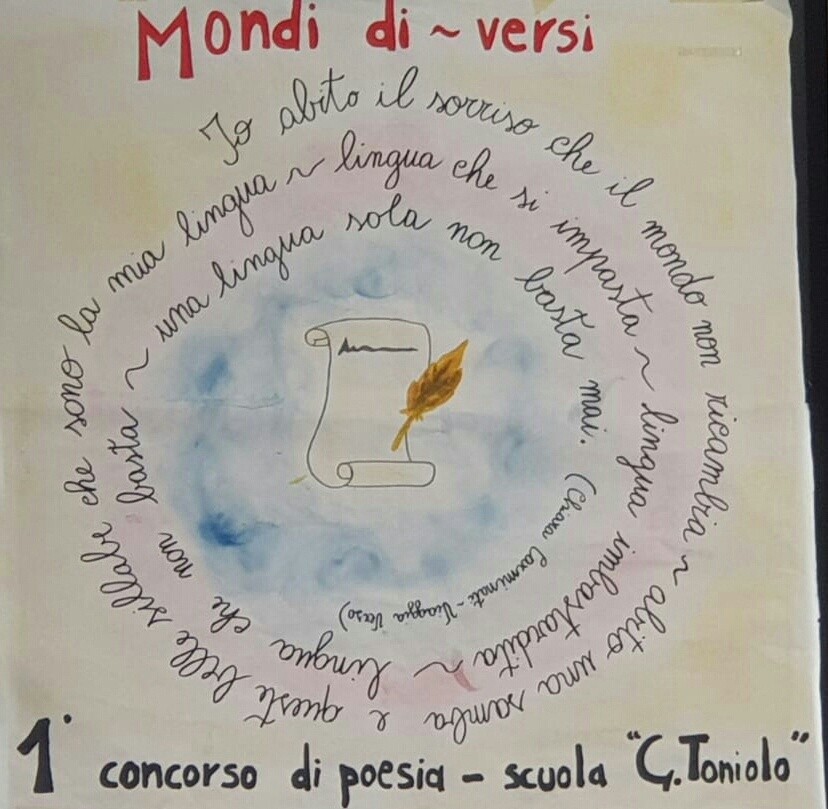 Mondi di ~ versi
Io abito il sorriso che il mondo non ricambia ~ abito una samba e queste belle sillabe che sono la mia lingua ~ lingua che si impasta ~ lingua imbastardita ~ lingua che non basta ~ una lingua sola non basta mai. (Chiara Carminati ~ Viaggia Verso)
1° concorso di poesia - scuola "G. Toniolo"